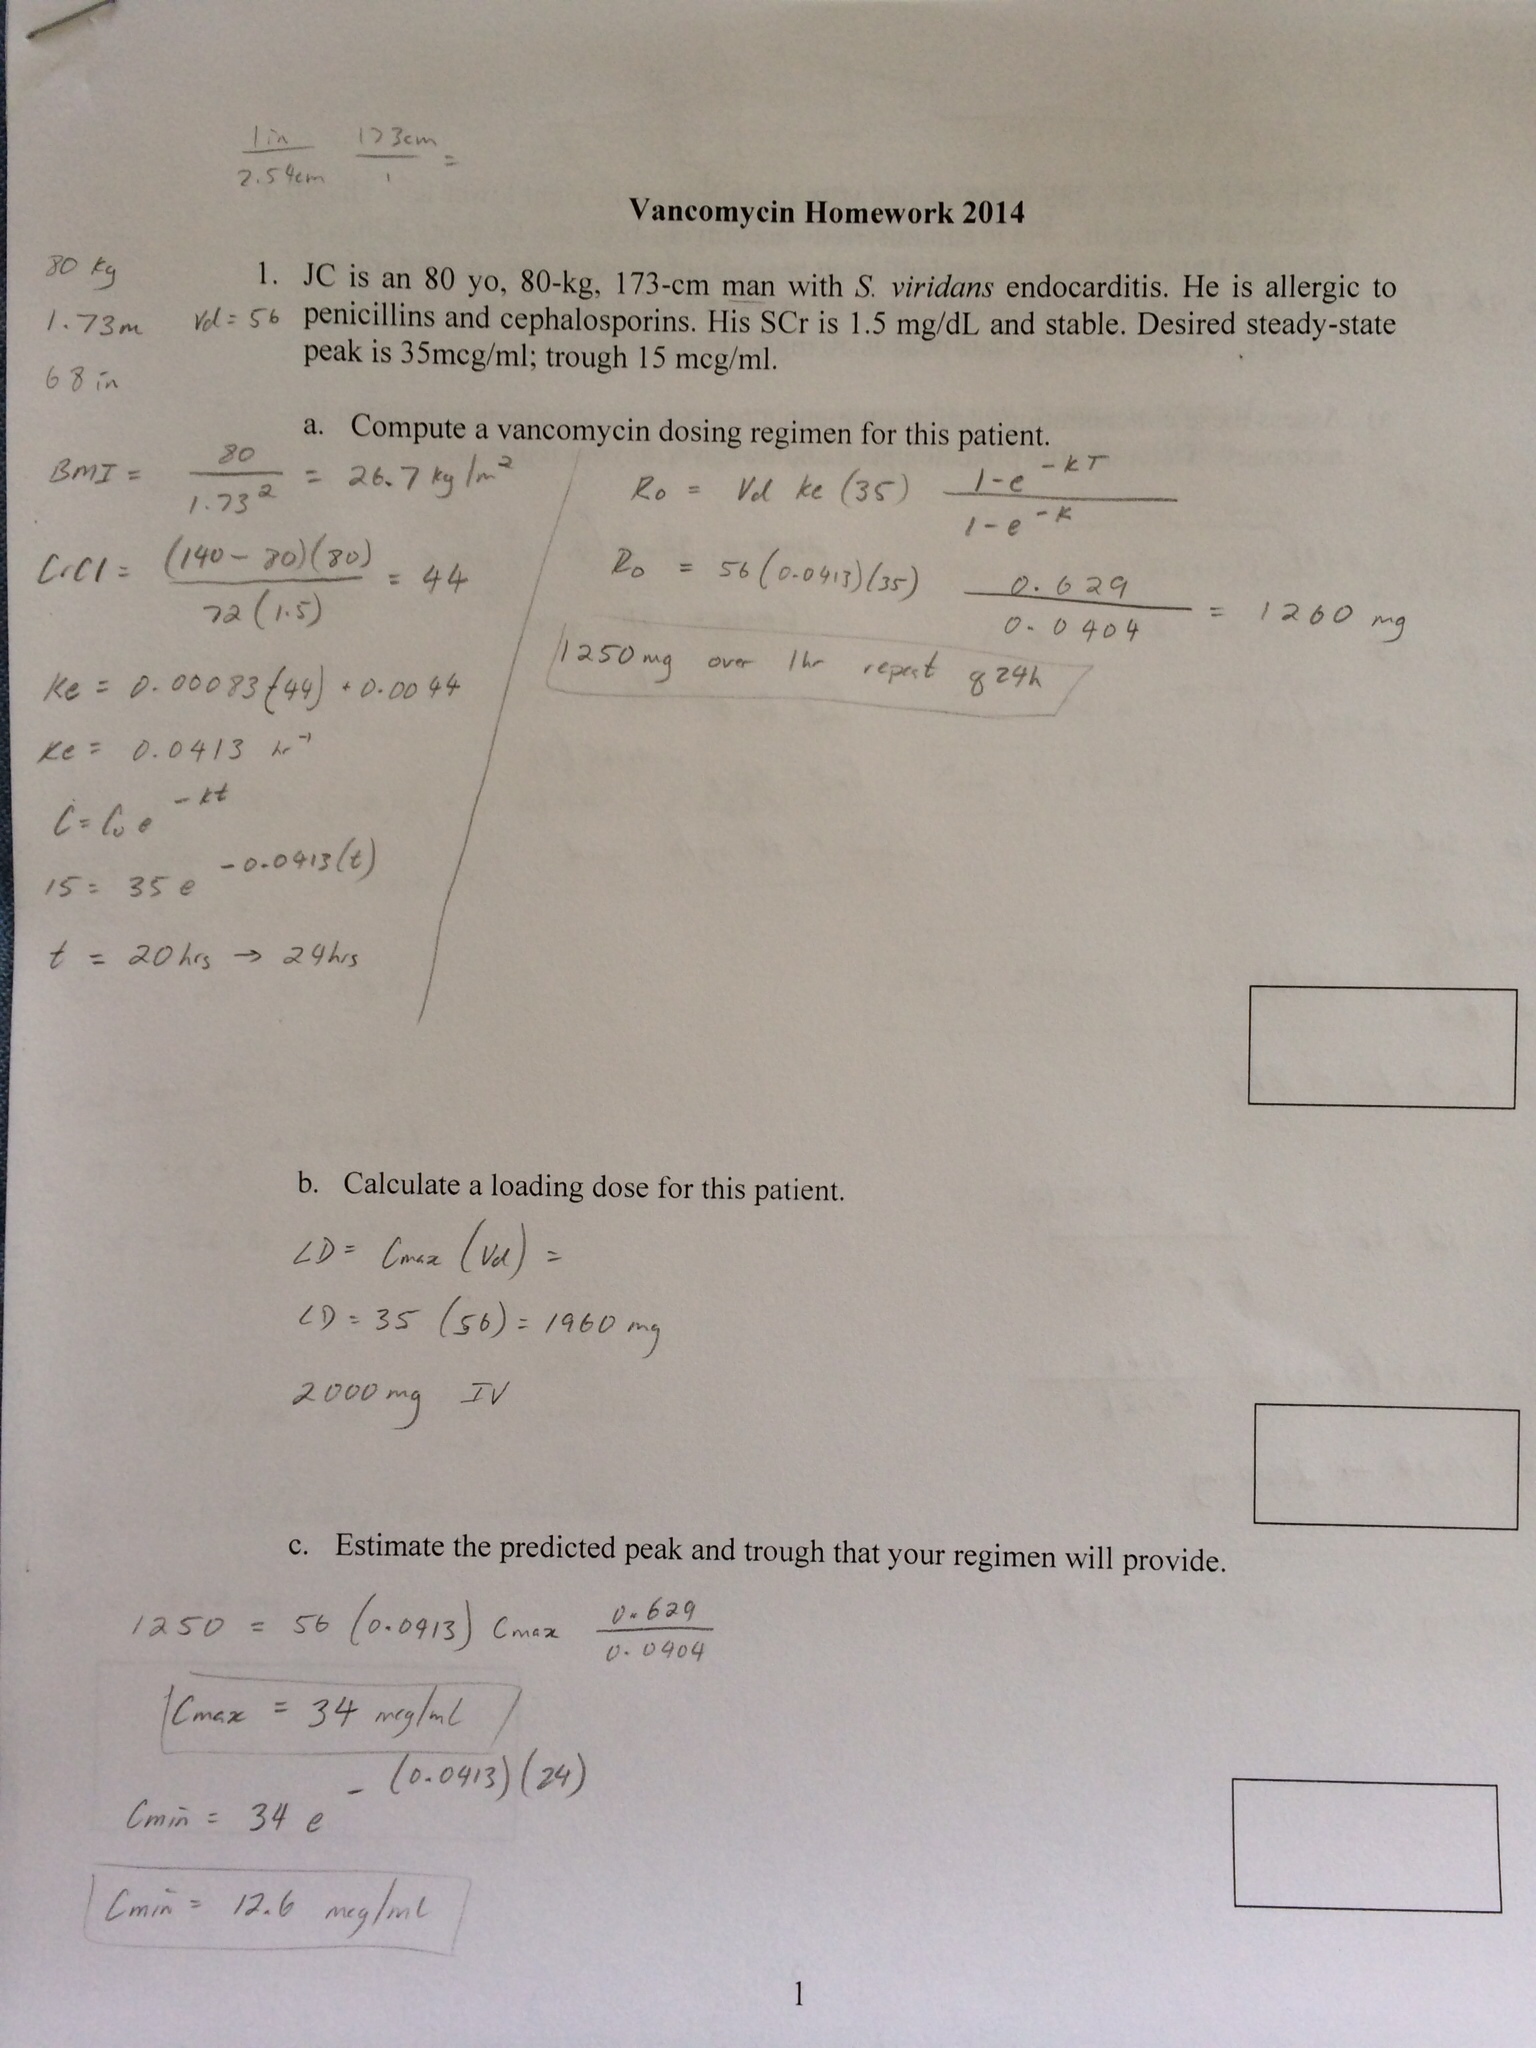 1in 173cm
2.54cm 1 =
Vancomycin Homework 2014
80 kg
1.73m Vd = 56
68 in
1. JC is an 80 yo, 80-kg, 173-cm man with S. viridans endocarditis. He is allergic to
penicillins and cephalosporins. His SCr is 1.5 mg/dL and stable. Desired steady-state
peak is 35mcg/ml; trough 15 mcg/ml.
a. Compute a vancomycin dosing regimen for this patient.
BMI = 80 / 1.73² = 26.7 kg/m²
CrCl = (140-80)(80) / 72(1.5) = 44
Ke = 0.00083(44) + 0.0044
Ke = 0.0413 hr⁻¹
C = C₀ e^-kt
15 = 35 e^-0.0413(t)
t = 20hrs → 24hrs
Ro = Vd ke (35) 1-e^-KT / 1-e^-K
Ro = 56(0.0413)(35) 0.629 / 0.0404 = 1260 mg
1250mg over 1hr repeat q24h
b. Calculate a loading dose for this patient.
LD = Cmax (Vd) =
LD = 35 (56) = 1960 mg
2000mg IV
c. Estimate the predicted peak and trough that your regimen will provide.
1250 = 56 (0.0413) Cmax 0.629 / 0.0404
Cmax = 34 mcg/mL
Cmin = 34 e^-(0.0413)(24)
Cmin = 12.6 mcg/mL
1